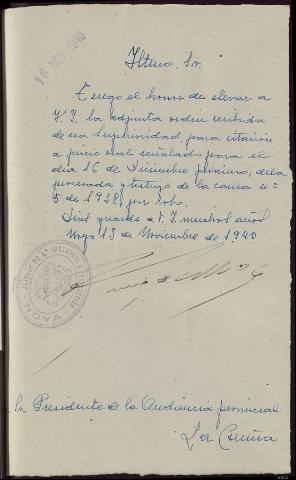 16 NOV 1940
Iltmo. Sr.
Tengo el honor de elevar a
V. I. la adjunta orden recibida
de esa Superioridad para citación
a juicio oral señalado para el
día 16 de Diciembre próximo, de la
procesada y testigo de la causa nº
5 de 1938, por robo.
Dios guarde a V. I. muchos años
Noya 13 de Noviembre de 1940
JUZGADO DE 1ª INSTANCIA
NOYA
Sr. Presidente de la Audiencia provincial
La Coruña